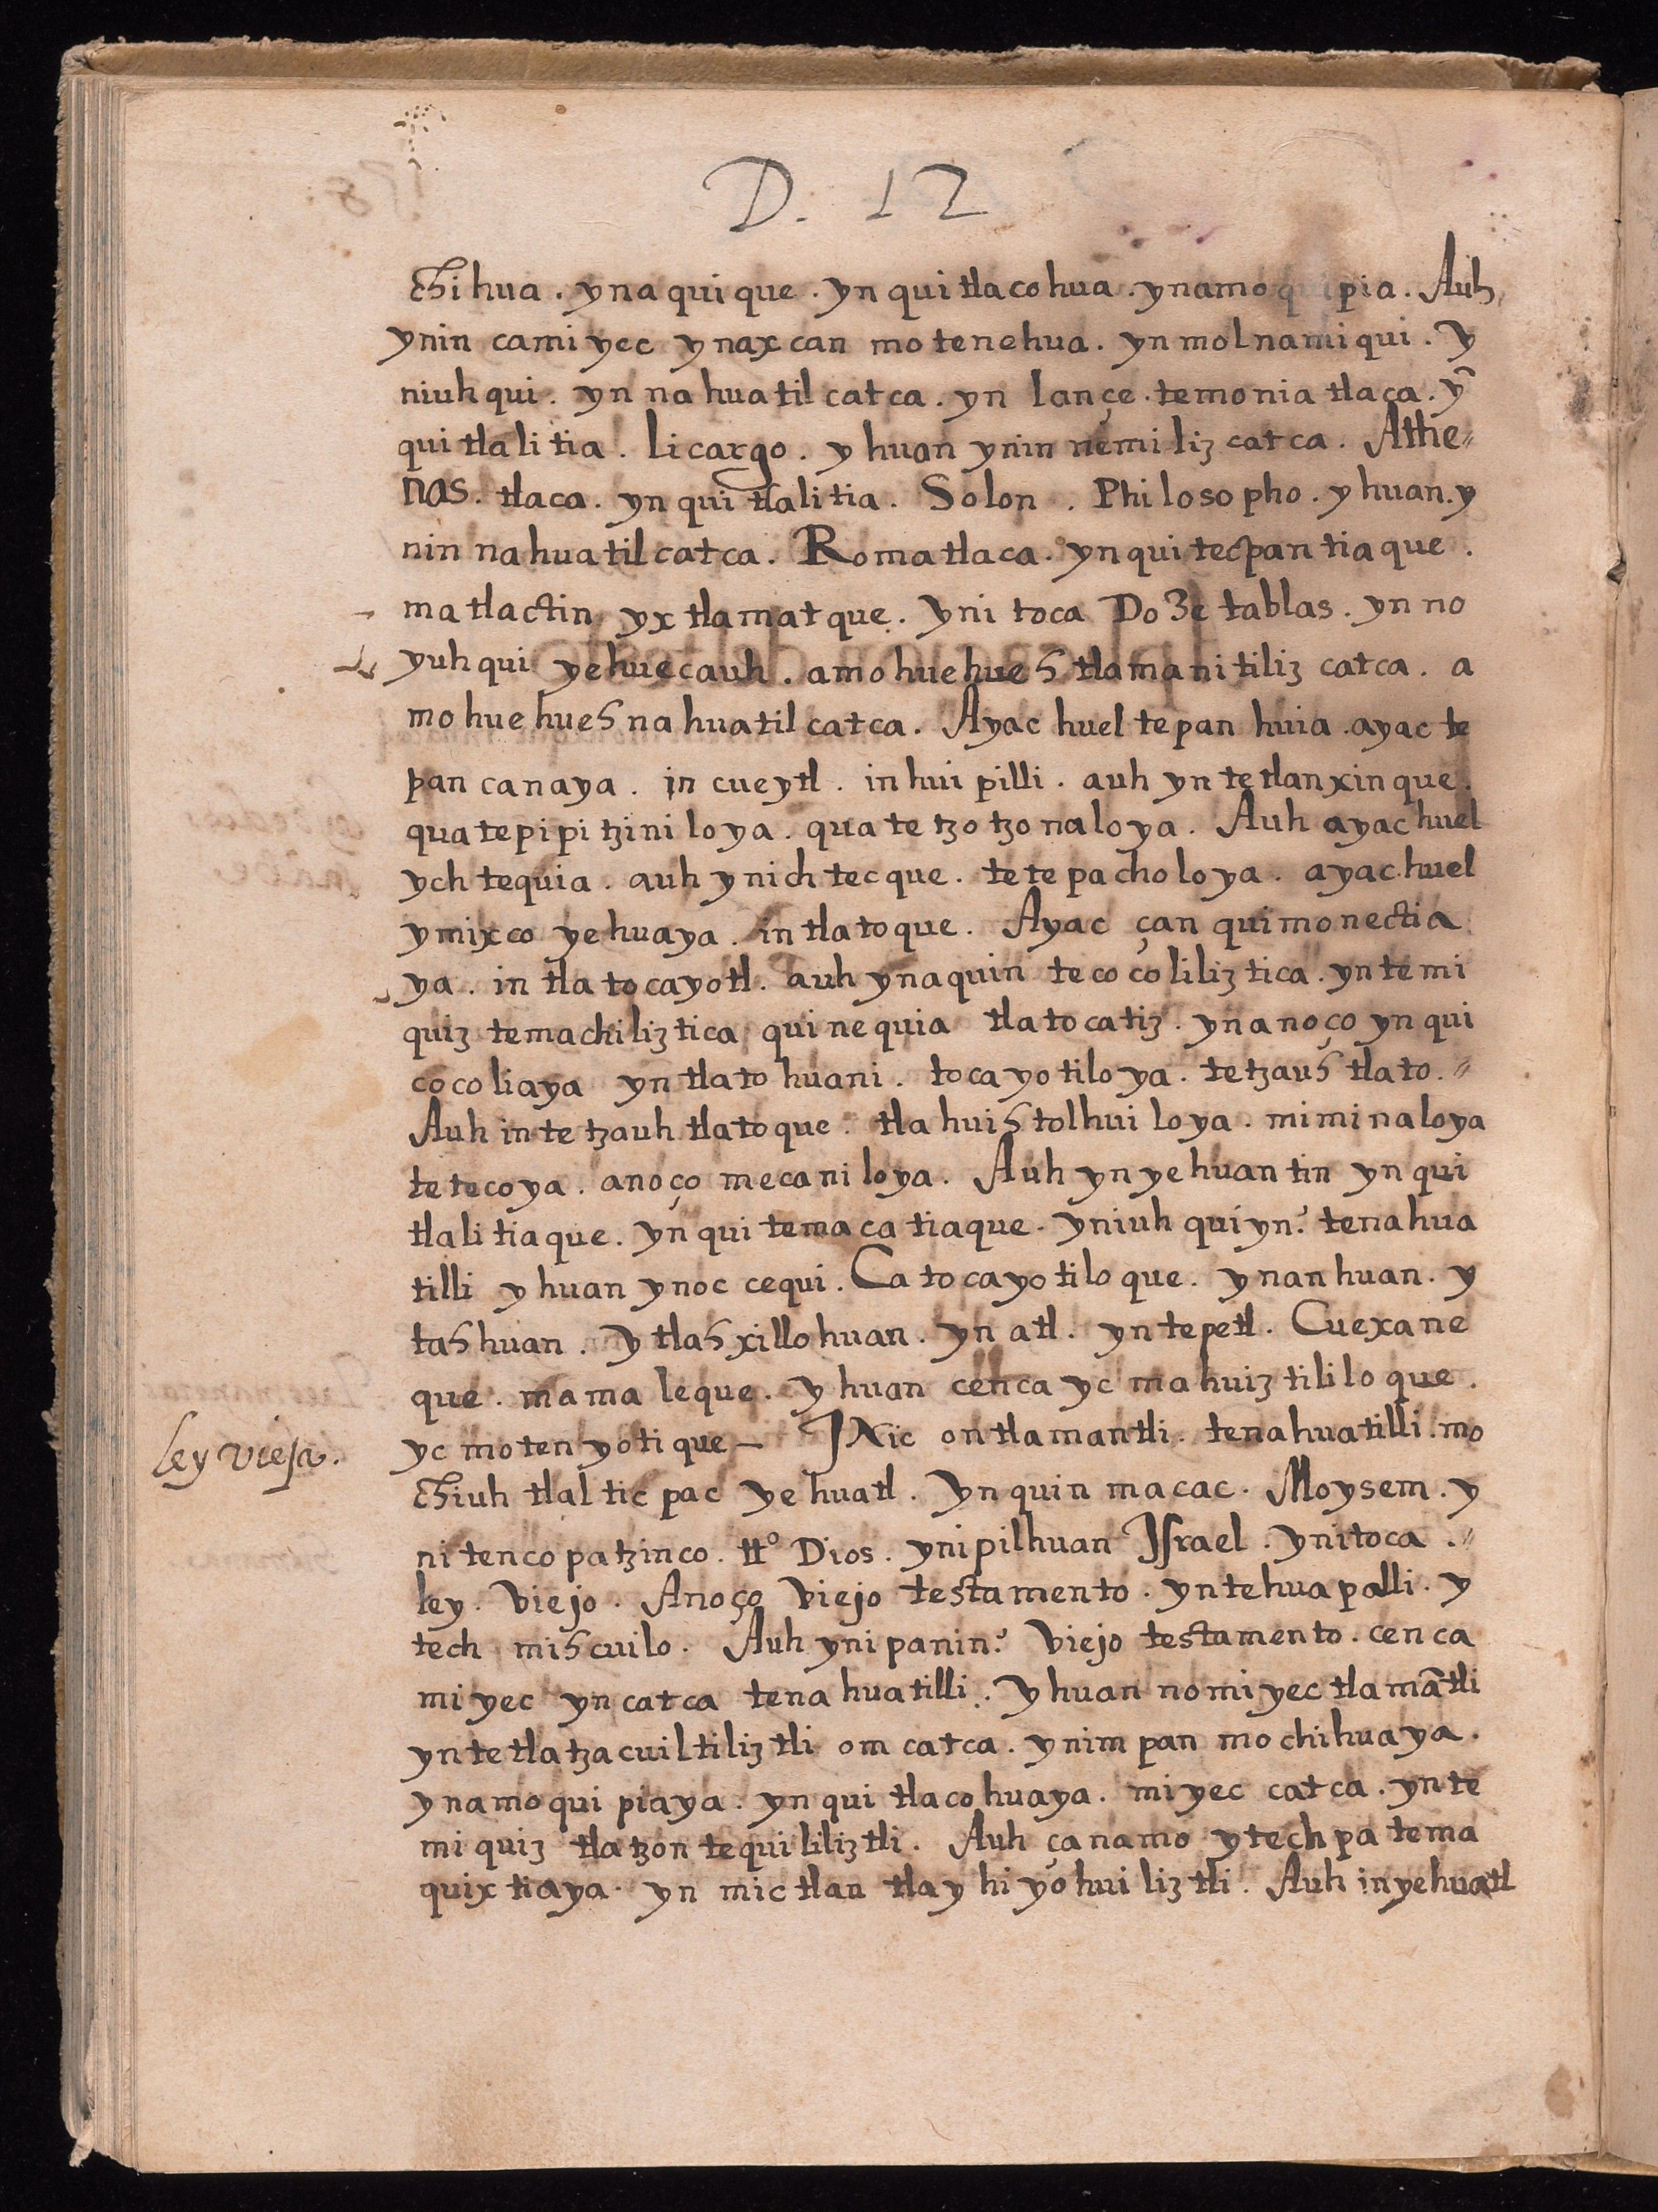 D. 12
chihua . ynaquique . yn quitlacohua . ynamo quipia . Auh
ynin camiyec ynaxcan motenehua . yn molnamiqui . y
niuhqui . yn nahuatil catca . yn lançe . temonia tlaca . ỹ
quitlalitia . licargo . yhuan ynin nemiliz catca . Athe〃
nas . tlaca . yn quitlalitia . Solon . Philosopho . yhuan . y
nin nahuatil catca . Romatlaca . yn quitecpantiaque .
matlactin yxtlamatque . yni toca Do3e tablas . yn no
yuhqui yehuecauh . amo huehueh tlamanitiliz catca . a
mo huehueh nahuatil catca . Ayac huel tepan huia . ayac te
pan canaya . in cueytl . in huipilli . auh yn tetlanxinque .
quatepipitziniloya . quatetzotzonaloya . Auh ayac huel
ychtequia . auh ynichtecque . tetepacholoya . ayac huel
ymixco yehuaya . in tlatoque . Ayac çan quimonectia
ya . in tlatocayotl . auh ynaquin tecocoliliztica . yn temi
quiz temachiliztica quinequia tlatocatiz . ynanoço yn qui
cocoliaya yn tlatohuani . tocayotiloya . tetzauh tlato . 〃
Auh in tetzauh tlatoque . tlahuihtolhuiloya . miminaloya
tetecoya . anoço mecaniloya . Auh yn yehuantin yn qui
tlalitiaque . yn quitemacatiaque . yniuhqui yn . tenahua
tilli yhuan ynoc cequi . Ca tocayotiloque . ynanhuan . y
tahhuan . ytlahxillohuan . yn atl . yn tepetl . Cuexane
que . mamaleque . yhuan cenca yc mahuiztililoque .
yc motenyotique – JNic ontlamantli . tenahuatilli . mo
ley vieja .
chiuh tlalticpac yehuatl . yn quinmacac . Moysem . y
nitencopatzinco . tt° Dios . ynipilhuan Jsrael . ynitoca . 〃
ley . viejo . Anoço viejo testamento . yn tehuapalli . y
tech mihcuilo . Auh ynipanin . viejo testamento . cenca
miyec yn catca tenahuatilli . yhuan no miyec tlamãtli
yn tetlatzacuiltiliztli om catca . ynimpan mochihuaya .
ynamo quipiaya . yn quitlacohuaya . miyec catca . yn te
miquiz tlatzontequililiztli . Auh çanamo ytechpa tema
quixtiaya . yn mictlan tlayhiyohuiliztli . Auh in yehuatl